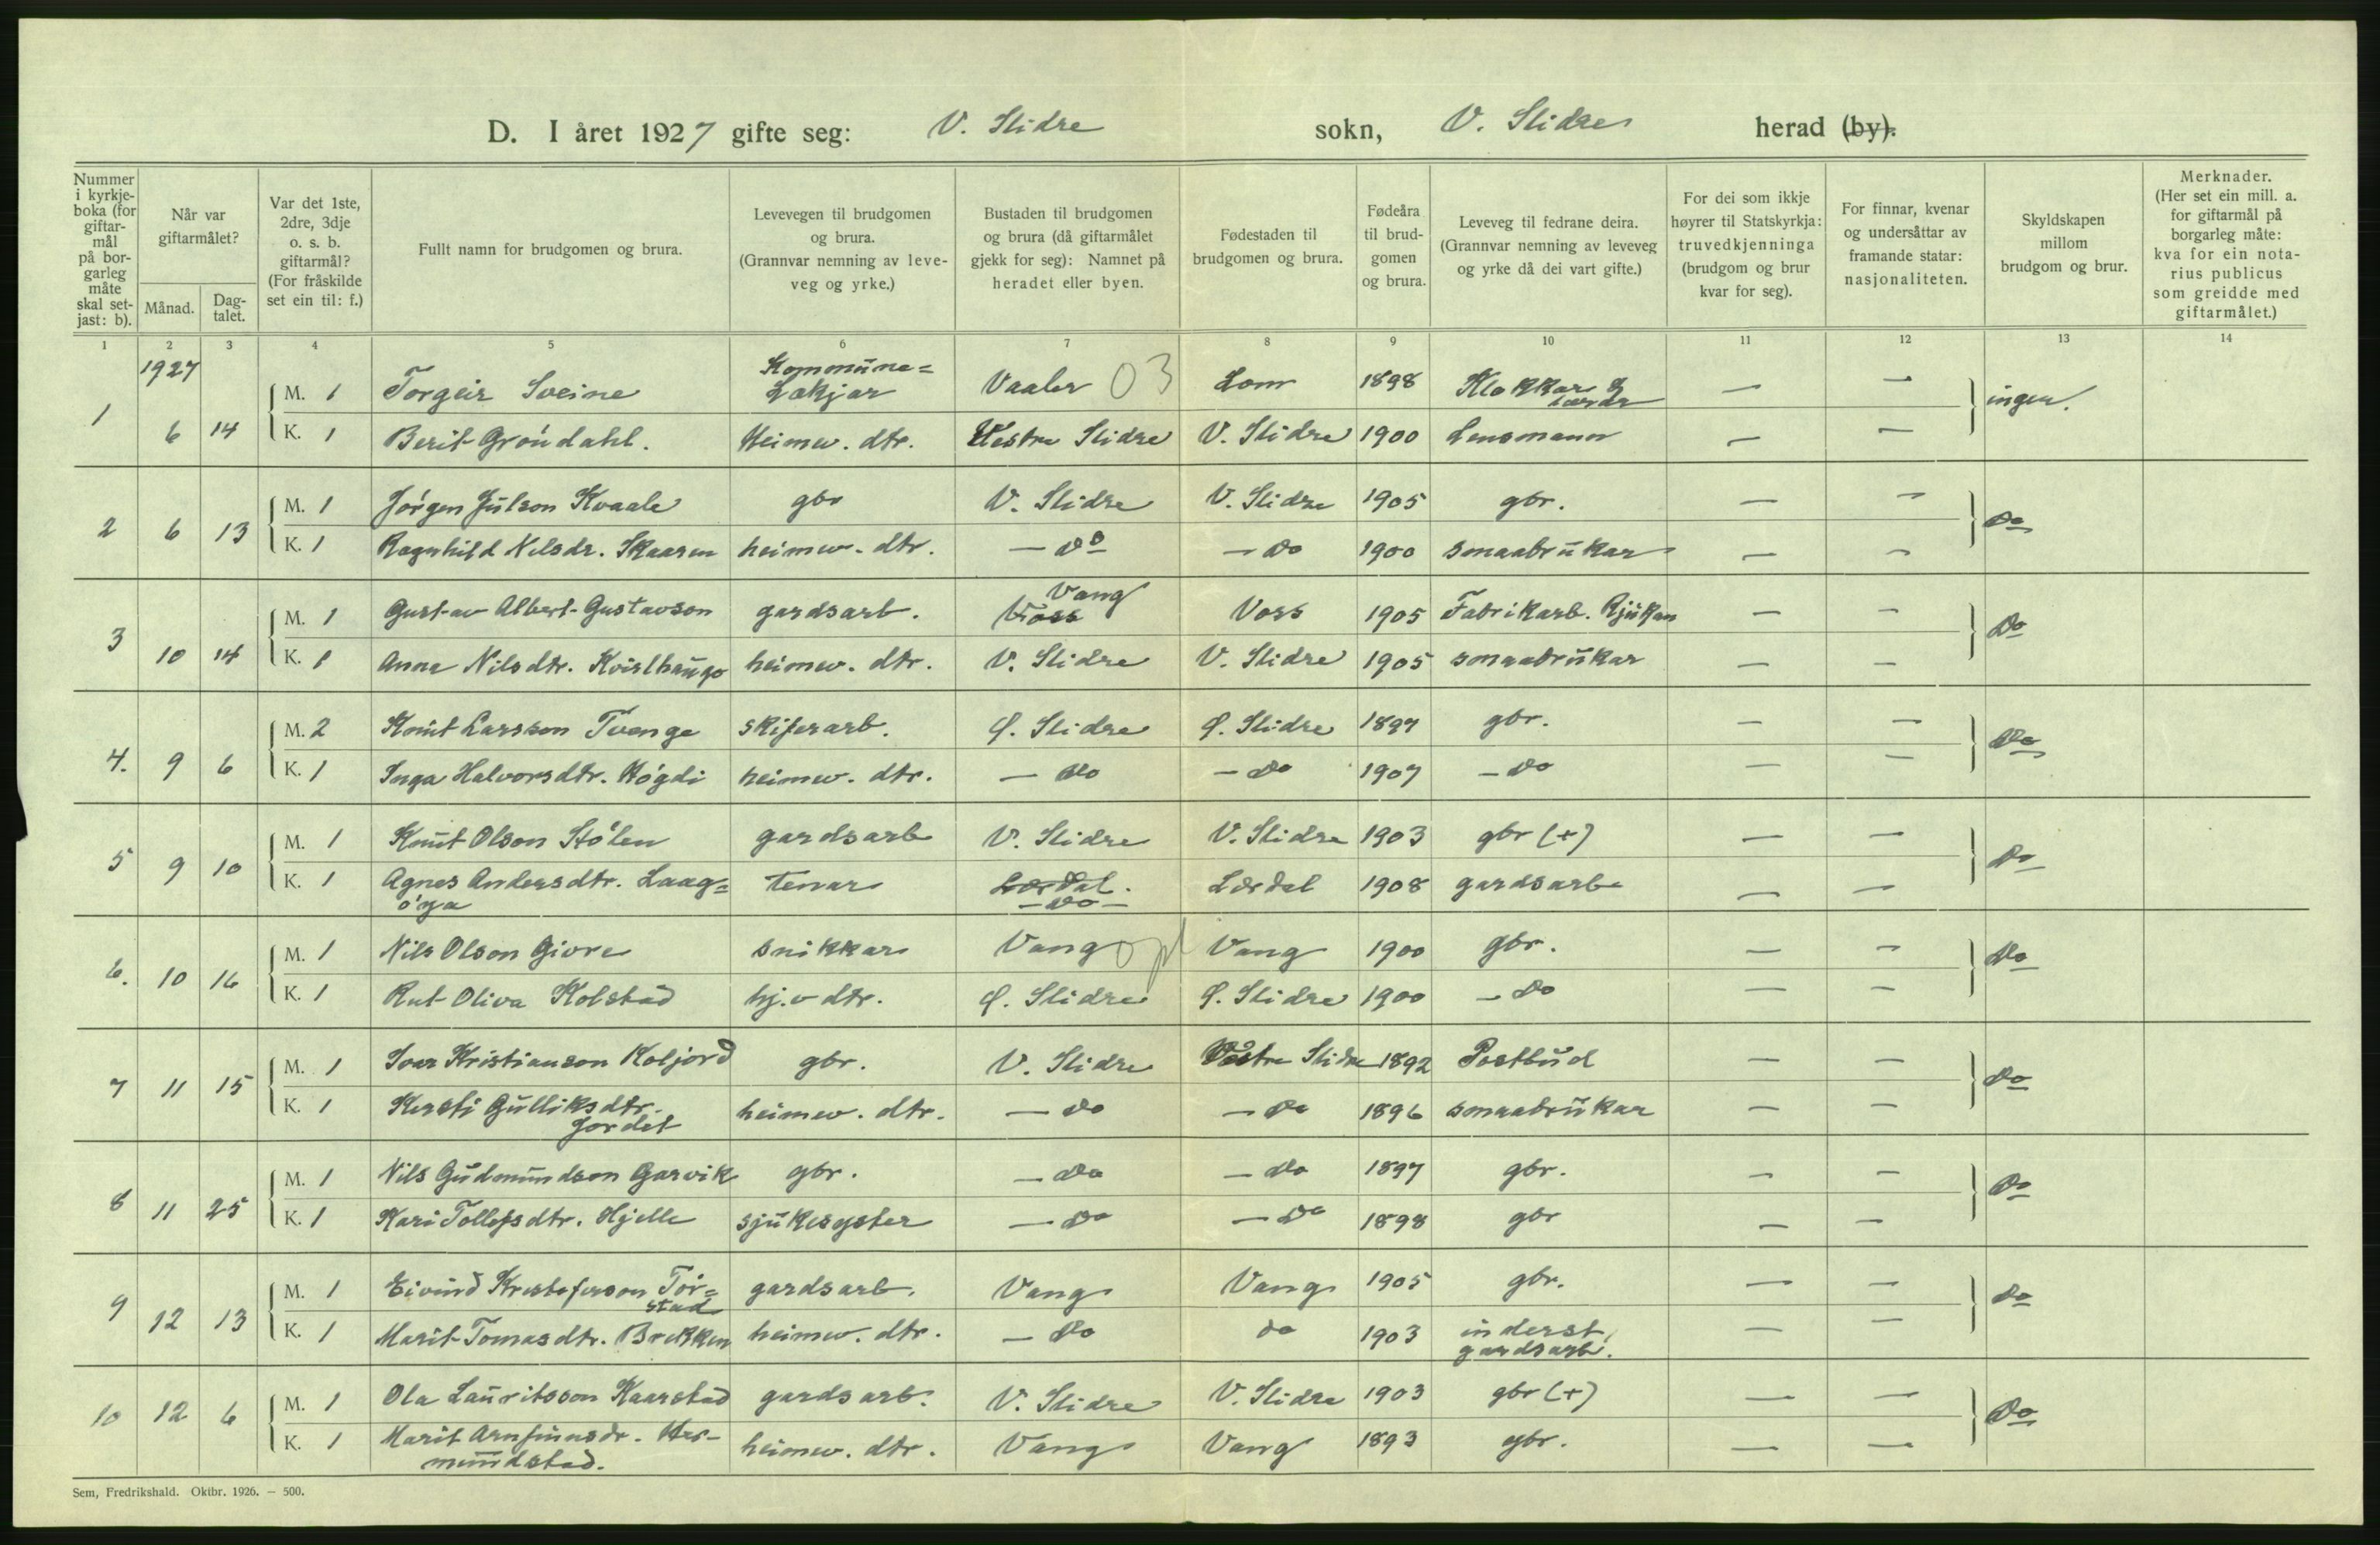 D. I året 1927 gifte seg: V. Slidre sokn, V. Slidre herad (by).
Nummer i kyrkjeboka (for giftarmål på borgarleg måte skal setjast: b).
Når var giftarmålet?
Månad.
Dagtalet.
Var det 1ste, 2dre, 3dje o. s. b. giftarmål? (For fråskilde set ein til: f.)
Fullt namn for brudgomen og brura.
Levevegen til brudgomen og brura. (Grannvar nemning av leveveg og yrke.)
Bustaden til brudgomen og brura (då giftarmålet gjekk for seg): Namnet på heradet eller byen.
Fødestaden til brudgomen og brura.
Fødeåra til brudgomen og brura.
Leveveg til fedrane deira. (Grannvar nemning av leveveg og yrke då dei vart gifte.)
For dei som ikkje høyrer til Statskyrkja: truvedkjenninga (brudgom og brur kvar for seg).
For finnar, kvenar og undersåttar av framande statar: nasjonaliteten.
Skyldskapen millom brudgom og brur.
Merknader. (Her set ein mill. a. for giftarmål på borgarleg måte: kva for ein notarius publicus som greidde med giftarmålet.)
1 2 3 4 5 6 7 8 9 10 11 12 13 14
1927
1 6 14 M. 1 Torgeir Sveine Kommune= Lækjar Vaaler 03 Lom 1898 Klokkar & — — ingen.
K. 1 Berit Grøndahl. Heimev. dtr. Vestre Slidre V. Slidre 1900 Lensmann — —
2 6 13 M. 1 Jørgen Julson Kvaale gbr V. Slidre V. Slidre 1905 gbr. — — Do
K. 1 Ragnhild Nilsdr. Skaaren heimev. dtr. — do — do 1900 smaabrukar — —
3 10 14 M. 1 Gustav Albert Gustavson gardsarb. Voss Vang Voss 1905 Fabrikarb. Rjukan — — Do
K. 1 Anna Nilsdtr. Kvislhaugo heimev. dtr. V. Slidre V. Slidre 1905 smaabrukar — —
4. 9 6 M. 2 Knut Larsson Tvenge skiferarb. Ø. Slidre Ø. Slidre 1897 gbr. — — Do
K. 1 Inga Halvorsdtr. Høgdi heimev. dtr. — Do — Do 1907 — Do — —
5 9 10 M. 1 Knut Olson Stølen gardsarb V. Slidre V. Slidre 1903 gbr (+) — — Do
K. 1 Agnes Andersdtr. Laag= øya tenar Lærdal. — Do — Lærdal 1908 gardsarb — —
6. 10 16 M. 1 Nils Olson Givre snikkar Vang opl Vang 1900 gbr. — — Do
K. 1 Rut Oliva Kolstad hj.v dtr. Ø. Slidre Ø. Slidre 1900 — Do — —
7 11 15 M. 1 Ivar Kristianson Koljord gbr. V. Slidre Vestre Slidre 1892 Postbud — — Do
K. 1 Kersti Gulliksdtr. Jordet heimev. dtr. — do — Do 1896 smaabrukar — —
8 11 25 M. 1 Nils Gudmundson Garvik gbr. — Do — Do 1897 gbr. — — Do
K. 1 Kari Tollefsdtr. Hjelle sjukesyster — Do — Do 1898 gbr — —
9 12 13 M. 1 Eivind Kristoferson Tør= stad gardsarb. Vang Vang 1905 gbr. — — Do
K. 1 Marit Tomasdtr. Brekken heimev. dtr. — Do do 1903 inderst, gardsarb. — —
10 12 6 M. 1 Ola Lauritsson Kaarstad gardsarb. V. Slidre V. Slidre 1903 gbr (+) — — Do
K. 1 Marit Arnfinnsdr. Her- mundstad. heimev. dtr. Vang Vang 1893 gbr. — —
Sem, Fredrikshald. Oktbr. 1926. – 500.